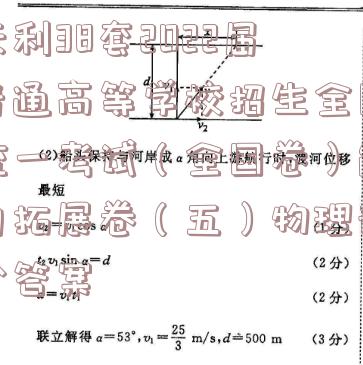 天利38套2022届
x
普通高等学校招生全国
d
v₂
(2)船头保持与河岸成α角向上游航行时,渡河位移
统一考试(全国卷)
最短
的拓展卷(五)物理
v₂=v₁cos α (1分)
t₂v₁sin α=d (2分)
答案
(2分)
联立解得 α=53°,v₁=25/3 m/s,d=500 m (3分)